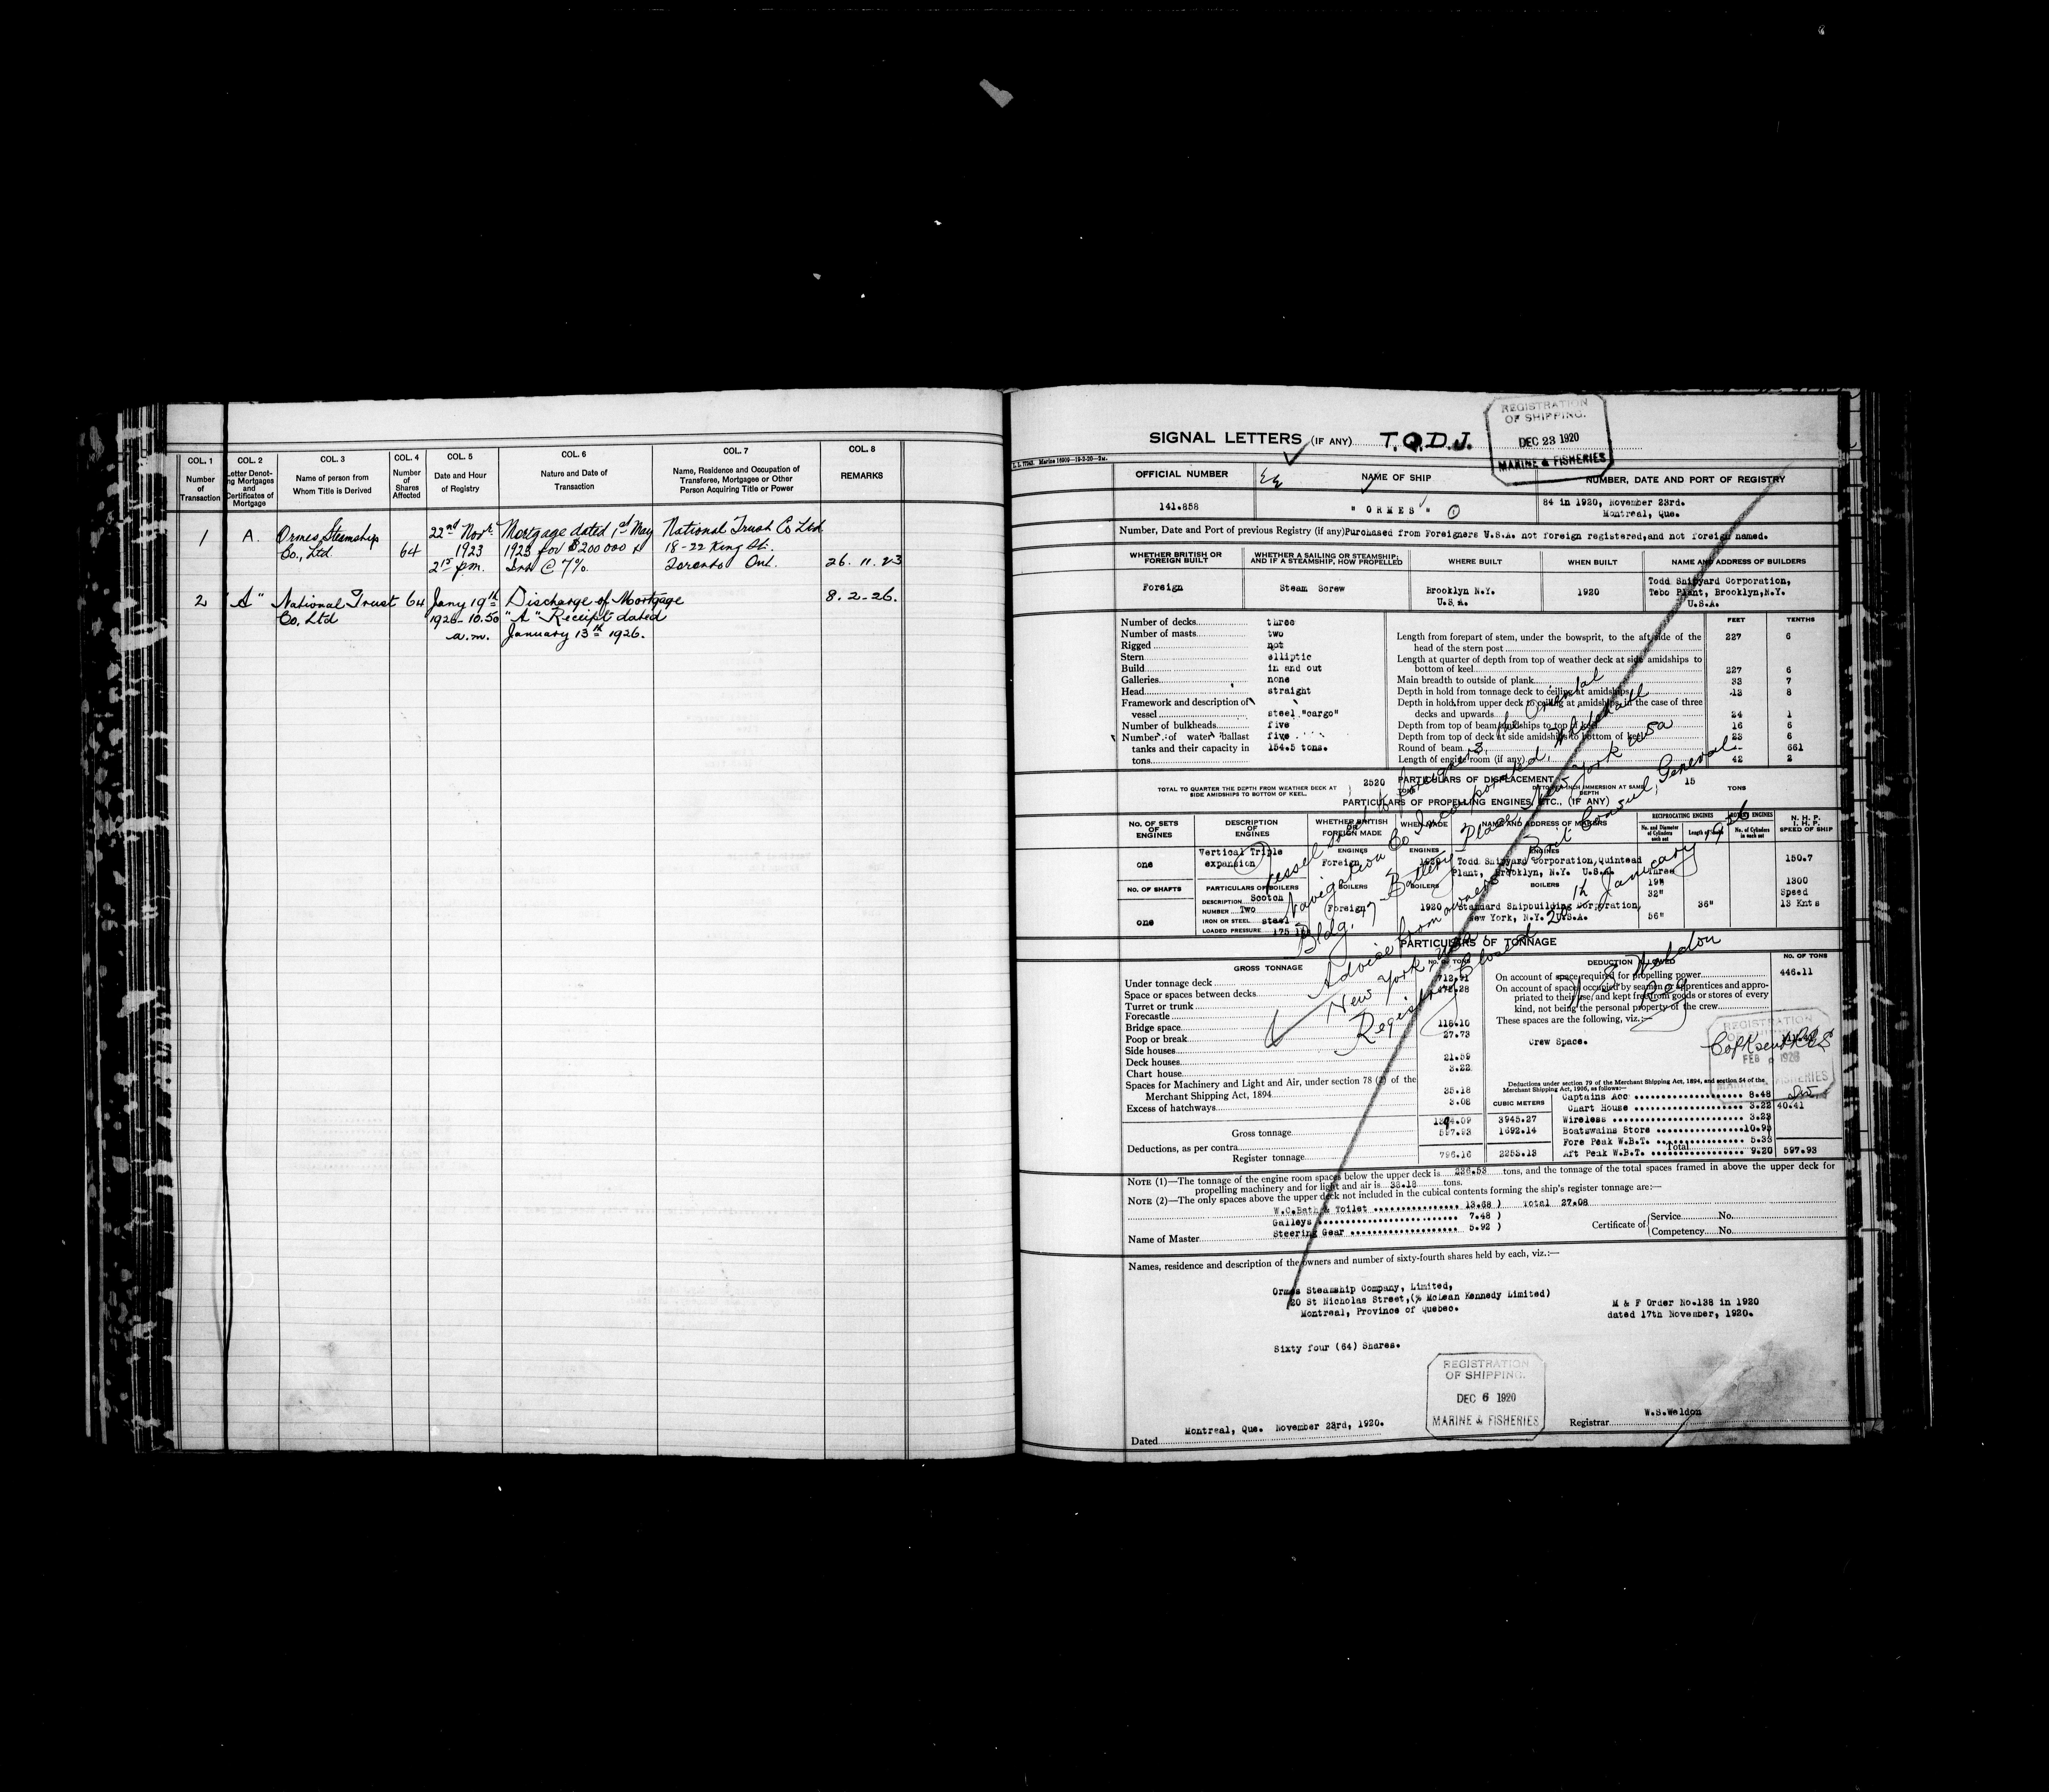 COL. 1 COL. 2 COL. 3 COL. 4 COL. 5 COL. 6 COL. 7 COL. 8
Number of Transaction
Letter Denoting Mortgages and Certificates of Mortgage
Name of person from Whom Title is Derived
Number of Shares Affected
Date and Hour of Registry
Nature and Date of Transaction
Name, Residence and Occupation of Transferee, Mortgagee or Other Person Acquiring Title or Power
REMARKS
1 A. Ormes Steamship 22nd Novr. Mortgage dated 1st May National Trust Co Ltd
Co., Ltd 64 1923 1923 for $200 000 & 18-22 King St.
2 15 p.m. Int @ 7%. Toronto Ont. 26.11.23
2 "A" National Trust 64 Jany 19th Discharge of Mortgage 8.2-26.
Co. Ltd 1926-10.50 "A" Receipt dated
a.m. January 13th 1926.
SIGNAL LETTERS (IF ANY) T.Q.D.J.
REGISTRATION
OF SHIPPING.
DEC 23 1920
MARINE & FISHERIES
OFFICIAL NUMBER NAME OF SHIP NUMBER, DATE AND PORT OF REGISTRY
141.858 " ORMES " 1 84 in 1920, November 23rd.
Montreal, Que.
Number, Date and Port of previous Registry (if any) Purchased from Foreigners U.S.A. not foreign registered,and not foreign named.
WHETHER BRITISH OR FOREIGN BUILT
WHETHER A SAILING OR STEAMSHIP; AND IF A STEAMSHIP, HOW PROPELLED
WHERE BUILT
WHEN BUILT
NAME AND ADDRESS OF BUILDERS
Foreign Steam Screw Brooklyn N.Y. U.S.A. 1920
Todd Shipyard Corporation,
Tebo Plant, Brooklyn,N.Y.
U.S.A.
Number of decks three
Number of masts two
Rigged not
Stern elliptic
Build in and out
Galleries none
Head straight
Framework and description of
vessel steel "cargo"
Number of bulkheads five
Number of water ballast five
tanks and their capacity in 154.5 tons.
tons
FEET TENTHS
Length from forepart of stem, under the bowsprit, to the aft side of the
head of the stern post 227 6
Length at quarter of depth from top of weather deck at side amidships to
bottom of keel 227 6
Main breadth to outside of plank 33 7
Depth in hold from tonnage deck to ceiling at amidships 13 8
Depth in hold from upper deck to ceiling at amidships, in the case of three
decks and upwards 24 1
Depth from top of beam amidships to top of keel 16 6
Depth from top of deck at side amidships to bottom of keel 23 6
Round of beam - 661
Length of engine room (if any) 42 2
PARTICULARS OF DISPLACEMENT
TOTAL TO QUARTER THE DEPTH FROM WEATHER DECK AT SIDE AMIDSHIPS TO BOTTOM OF KEEL. 2520
DITTO PER INCH IMMERSION AT SAME DEPTH 15 TONS
PARTICULARS OF PROPELLING ENGINES, ETC., (IF ANY)
NO. OF SETS OF ENGINES
DESCRIPTION OF ENGINES
WHETHER BRITISH OR FOREIGN MADE
WHEN MADE
NAME AND ADDRESS OF MAKERS
RECIPROCATING ENGINES
No. and Diameter of Cylinders each set
Length of Stroke
ROTARY ENGINES
No. of Cylinders in each set
N. H. P.
I. H. P.
SPEED OF SHIP
ENGINES ENGINES ENGINES
one Vertical Triple expansion Foreign 1920 Todd Shipyard Corporation,Quintead
Plant, Brooklyn, N.Y. U.S.A. Three 150.7
NO. OF SHAFTS PARTICULARS OF BOILERS BOILERS BOILERS BOILERS 19" 1300
DESCRIPTION Scotch 32" Speed
NUMBER Two Foreign 1920 Standard Shipbuilding Corporation, 36" 13 Knts
one IRON OR STEEL steel New York, N.Y. U.S.A. 56"
LOADED PRESSURE 175
Vessel sold to foreigners, the Oriental
Navigation Co Incorporated, Whitehall
Bldg. 17 Battery Place, New York USA
Advice from owners & Brit Consul General
New York USA
Registry Closed 20th January 1926
W S Weldon
Reg
PARTICULARS OF TONNAGE
GROSS TONNAGE NO. OF TONS DEDUCTION ALLOWED NO. OF TONS
Under tonnage deck 712.71
Space or spaces between decks
Turret or trunk
Forecastle
Bridge space 118.10
Poop or break 27.73
Side houses
Deck houses 21.59
Chart house 3.22
Spaces for Machinery and Light and Air, under section 78 (2) of the
Merchant Shipping Act, 1894 35.18
Excess of hatchways 3.08
CUBIC METERS
Gross tonnage 1394.09 3945.27
Deductions, as per contra 597.93 1692.14
Register tonnage 796.16 2253.13
On account of space required for propelling power 446.11
On account of space occupied by seamen or apprentices and appro-
priated to their use, and kept free from goods or stores of every
kind, not being the personal property of the crew
These spaces are the following, viz.:—
Crew Space.
REGISTRATION
FEB 1926
MARINE & FISHERIES
Deductions under section 79 of the Merchant Shipping Act, 1894, and section 54 of the
Merchant Shipping Act, 1906, as follows:—
Captains Acc 8.48
Chart House 3.22 40.41
Wireless 3.23
Boatswains Store 10.95
Fore Peak W.B.T. 5.33
Total
Aft Peak W.B.T. 9.20 597.93
NOTE (1)—The tonnage of the engine room spaces below the upper deck is 226.53 tons, and the tonnage of the total spaces framed in above the upper deck for
propelling machinery and for light and air is 35.18 tons.
NOTE (2)—The only spaces above the upper deck not included in the cubical contents forming the ship's register tonnage are:—
W.C.Bath & Toilet 13.68 ) Total 27.08
Galleys 7.48 )
Steering Gear 5.92 )
Name of Master
Certificate of Service No.
Competency No.
Names, residence and description of the owners and number of sixty-fourth shares held by each, viz.:—
Ormes Steamship Company, Limited,
20 St Nicholas Street,(% McLean Kennedy Limited)
Montreal, Province of Quebec.
M & F Order No.138 in 1920
dated 17th November, 1920.
Sixty four (64) Shares.
REGISTRATION
OF SHIPPING.
DEC 6 1920
MARINE & FISHERIES
Dated Montreal, Que. November 23rd, 1920.
Registrar W.S.Weldon